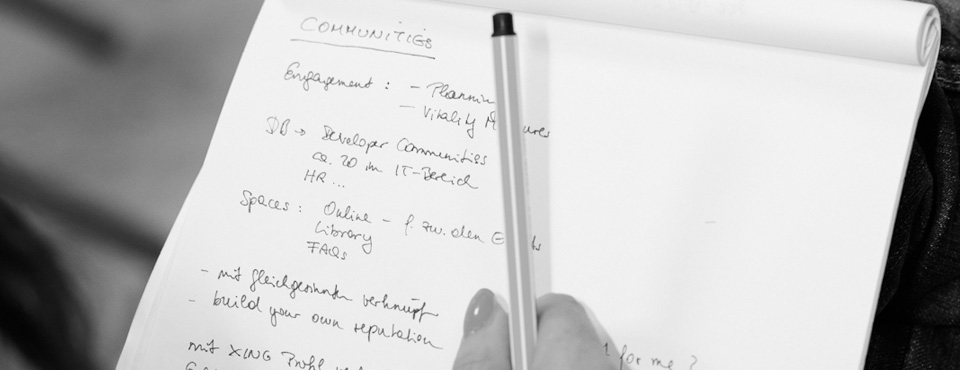 COMMUNITIES
Engagement : - Planni
- Vitality M ures
DB → Developer Communities
ca. 20 im IT-Bereich
HR ...
Spaces : Online - f. zw. den E ts
Library
FAQs
- mit gleichgesinnten verknüpft
- build your own reputation
mit XING Profil
for me ?